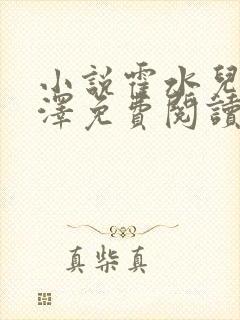 小說霍水兒
澤免費閱讀
真柴真